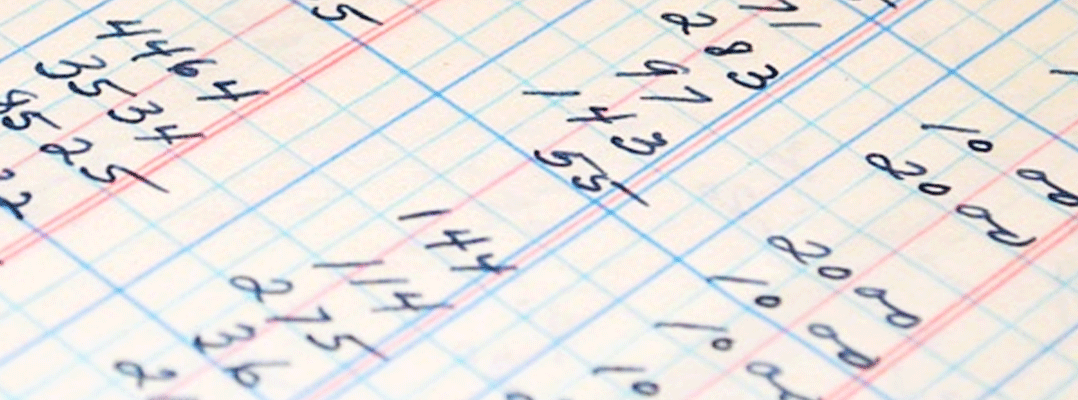 5
4464
3534
25
71
283
97
143
55
144
114
275
36
10 00
20 00
20 00
10 00
10
10